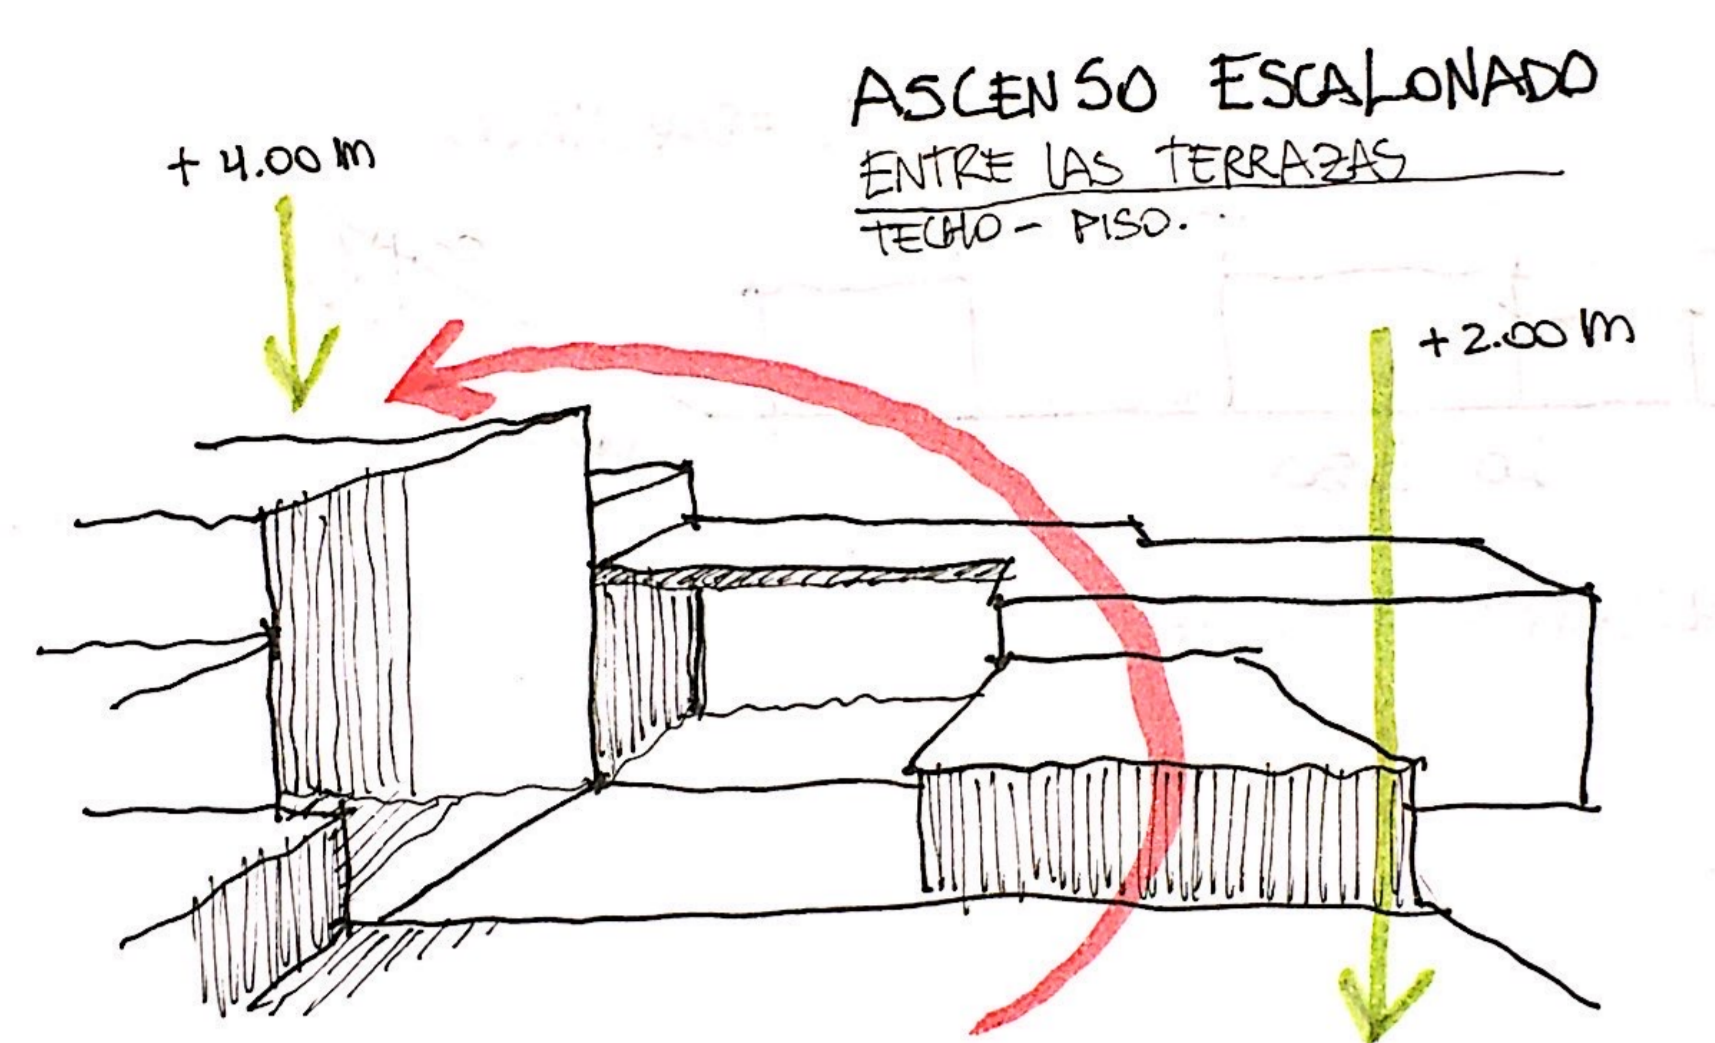 ASCENSO ESCALONADO
ENTRE LAS TERRAZAS
TECHO - PISO.
+ 4.00 m
+2.00 m